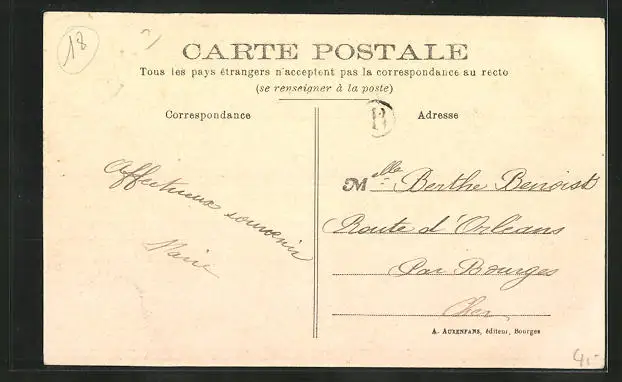 18
CARTE POSTALE
Tous les pays étrangers n'acceptent pas la correspondance au recto
(se renseigner à la poste)
Correspondance
Adresse
B
Affectueux souvenir
Marie
Melle Berthe Benoist
Route d'Orléans
Par Bourges
Cher
A. AUXENFANS, éditeur, Bourges
4,-